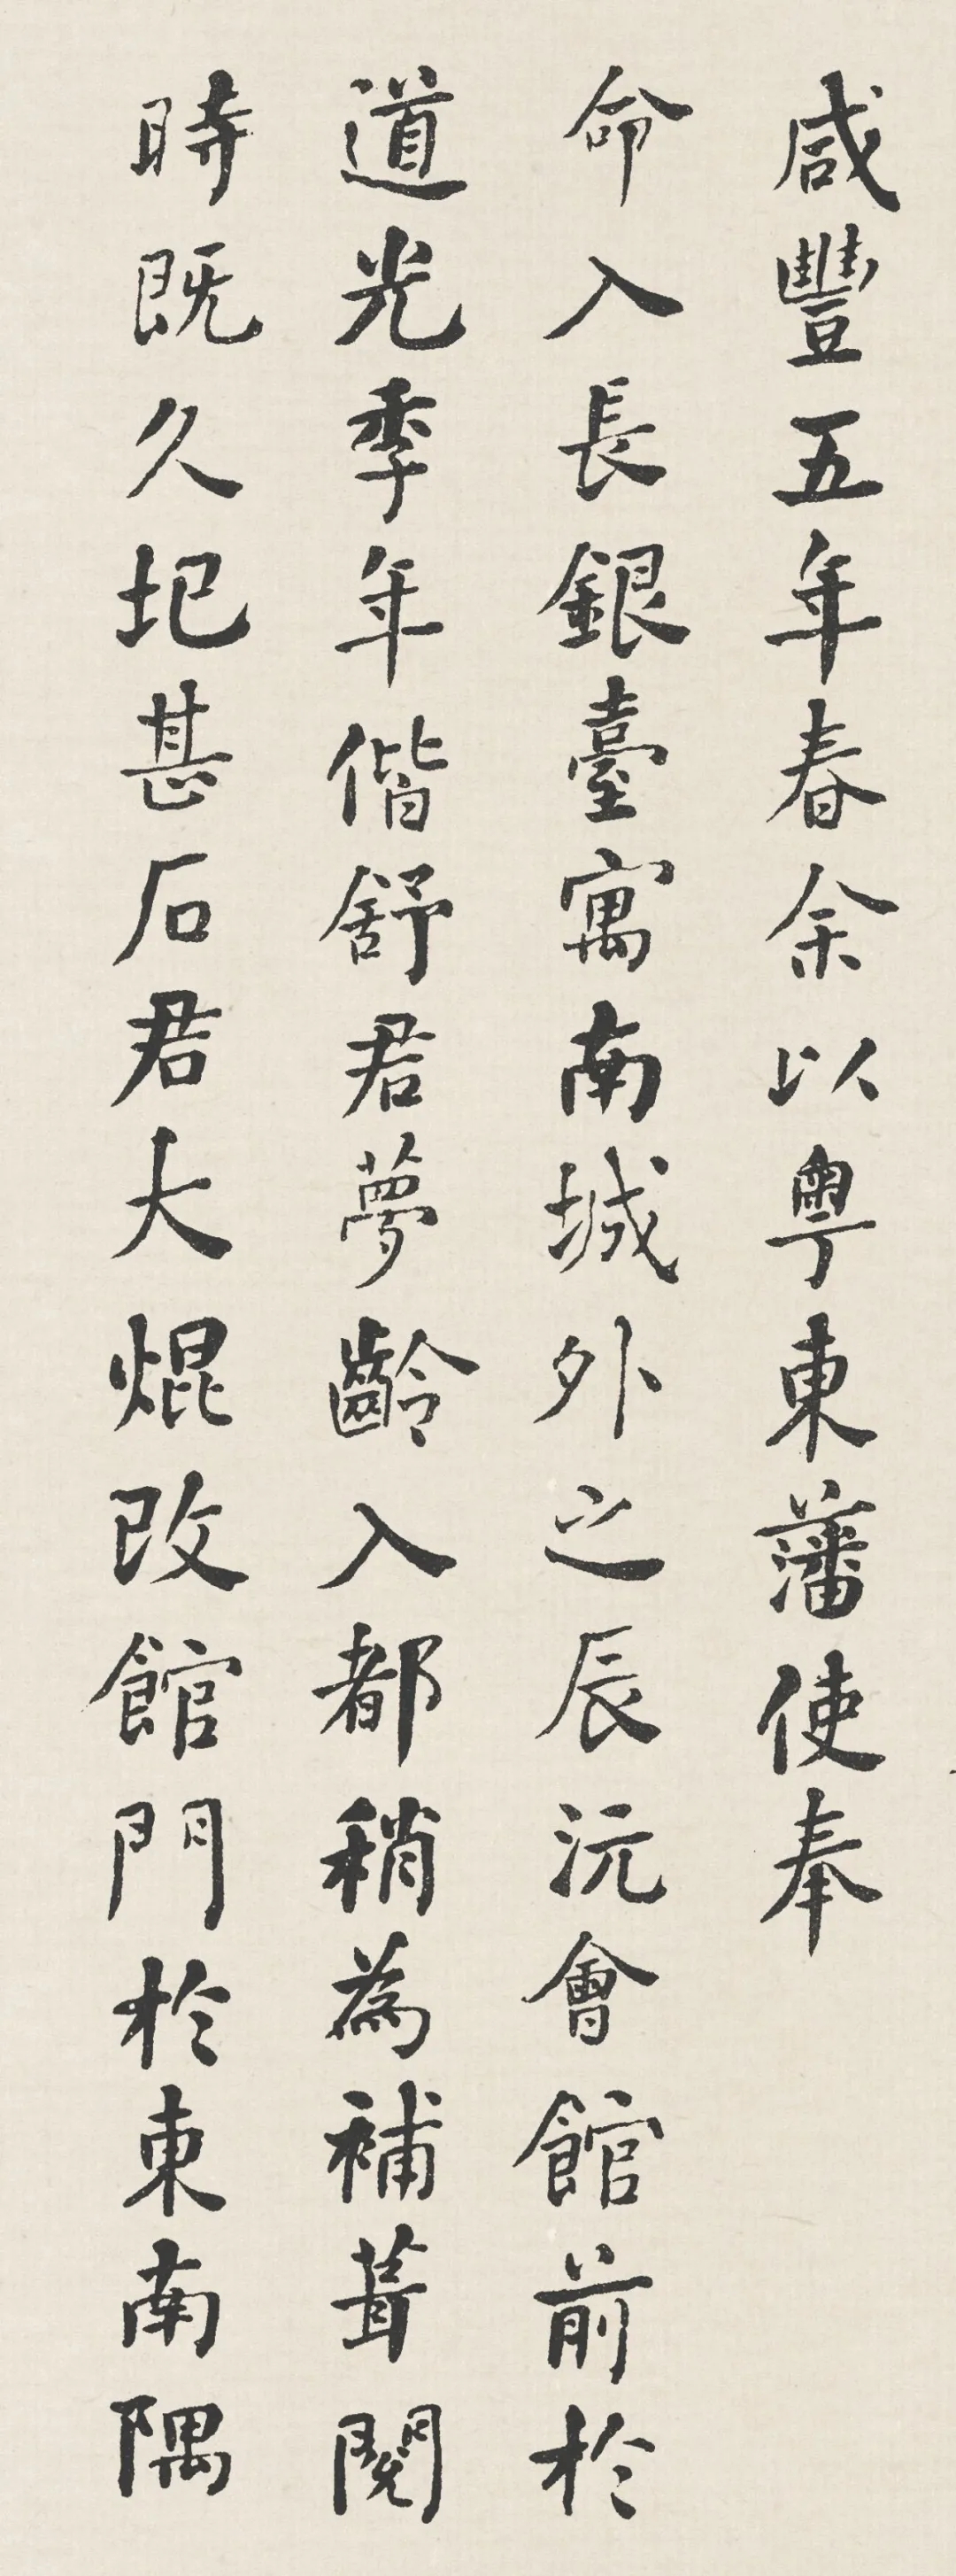 咸豐五年春余以粵東藩使奉
命入長銀臺寓南城外之辰沅會館前於
道光季年偕舒君夢齡入都稍為補葺閱
時既久圮甚石君大焜改館門於東南隅